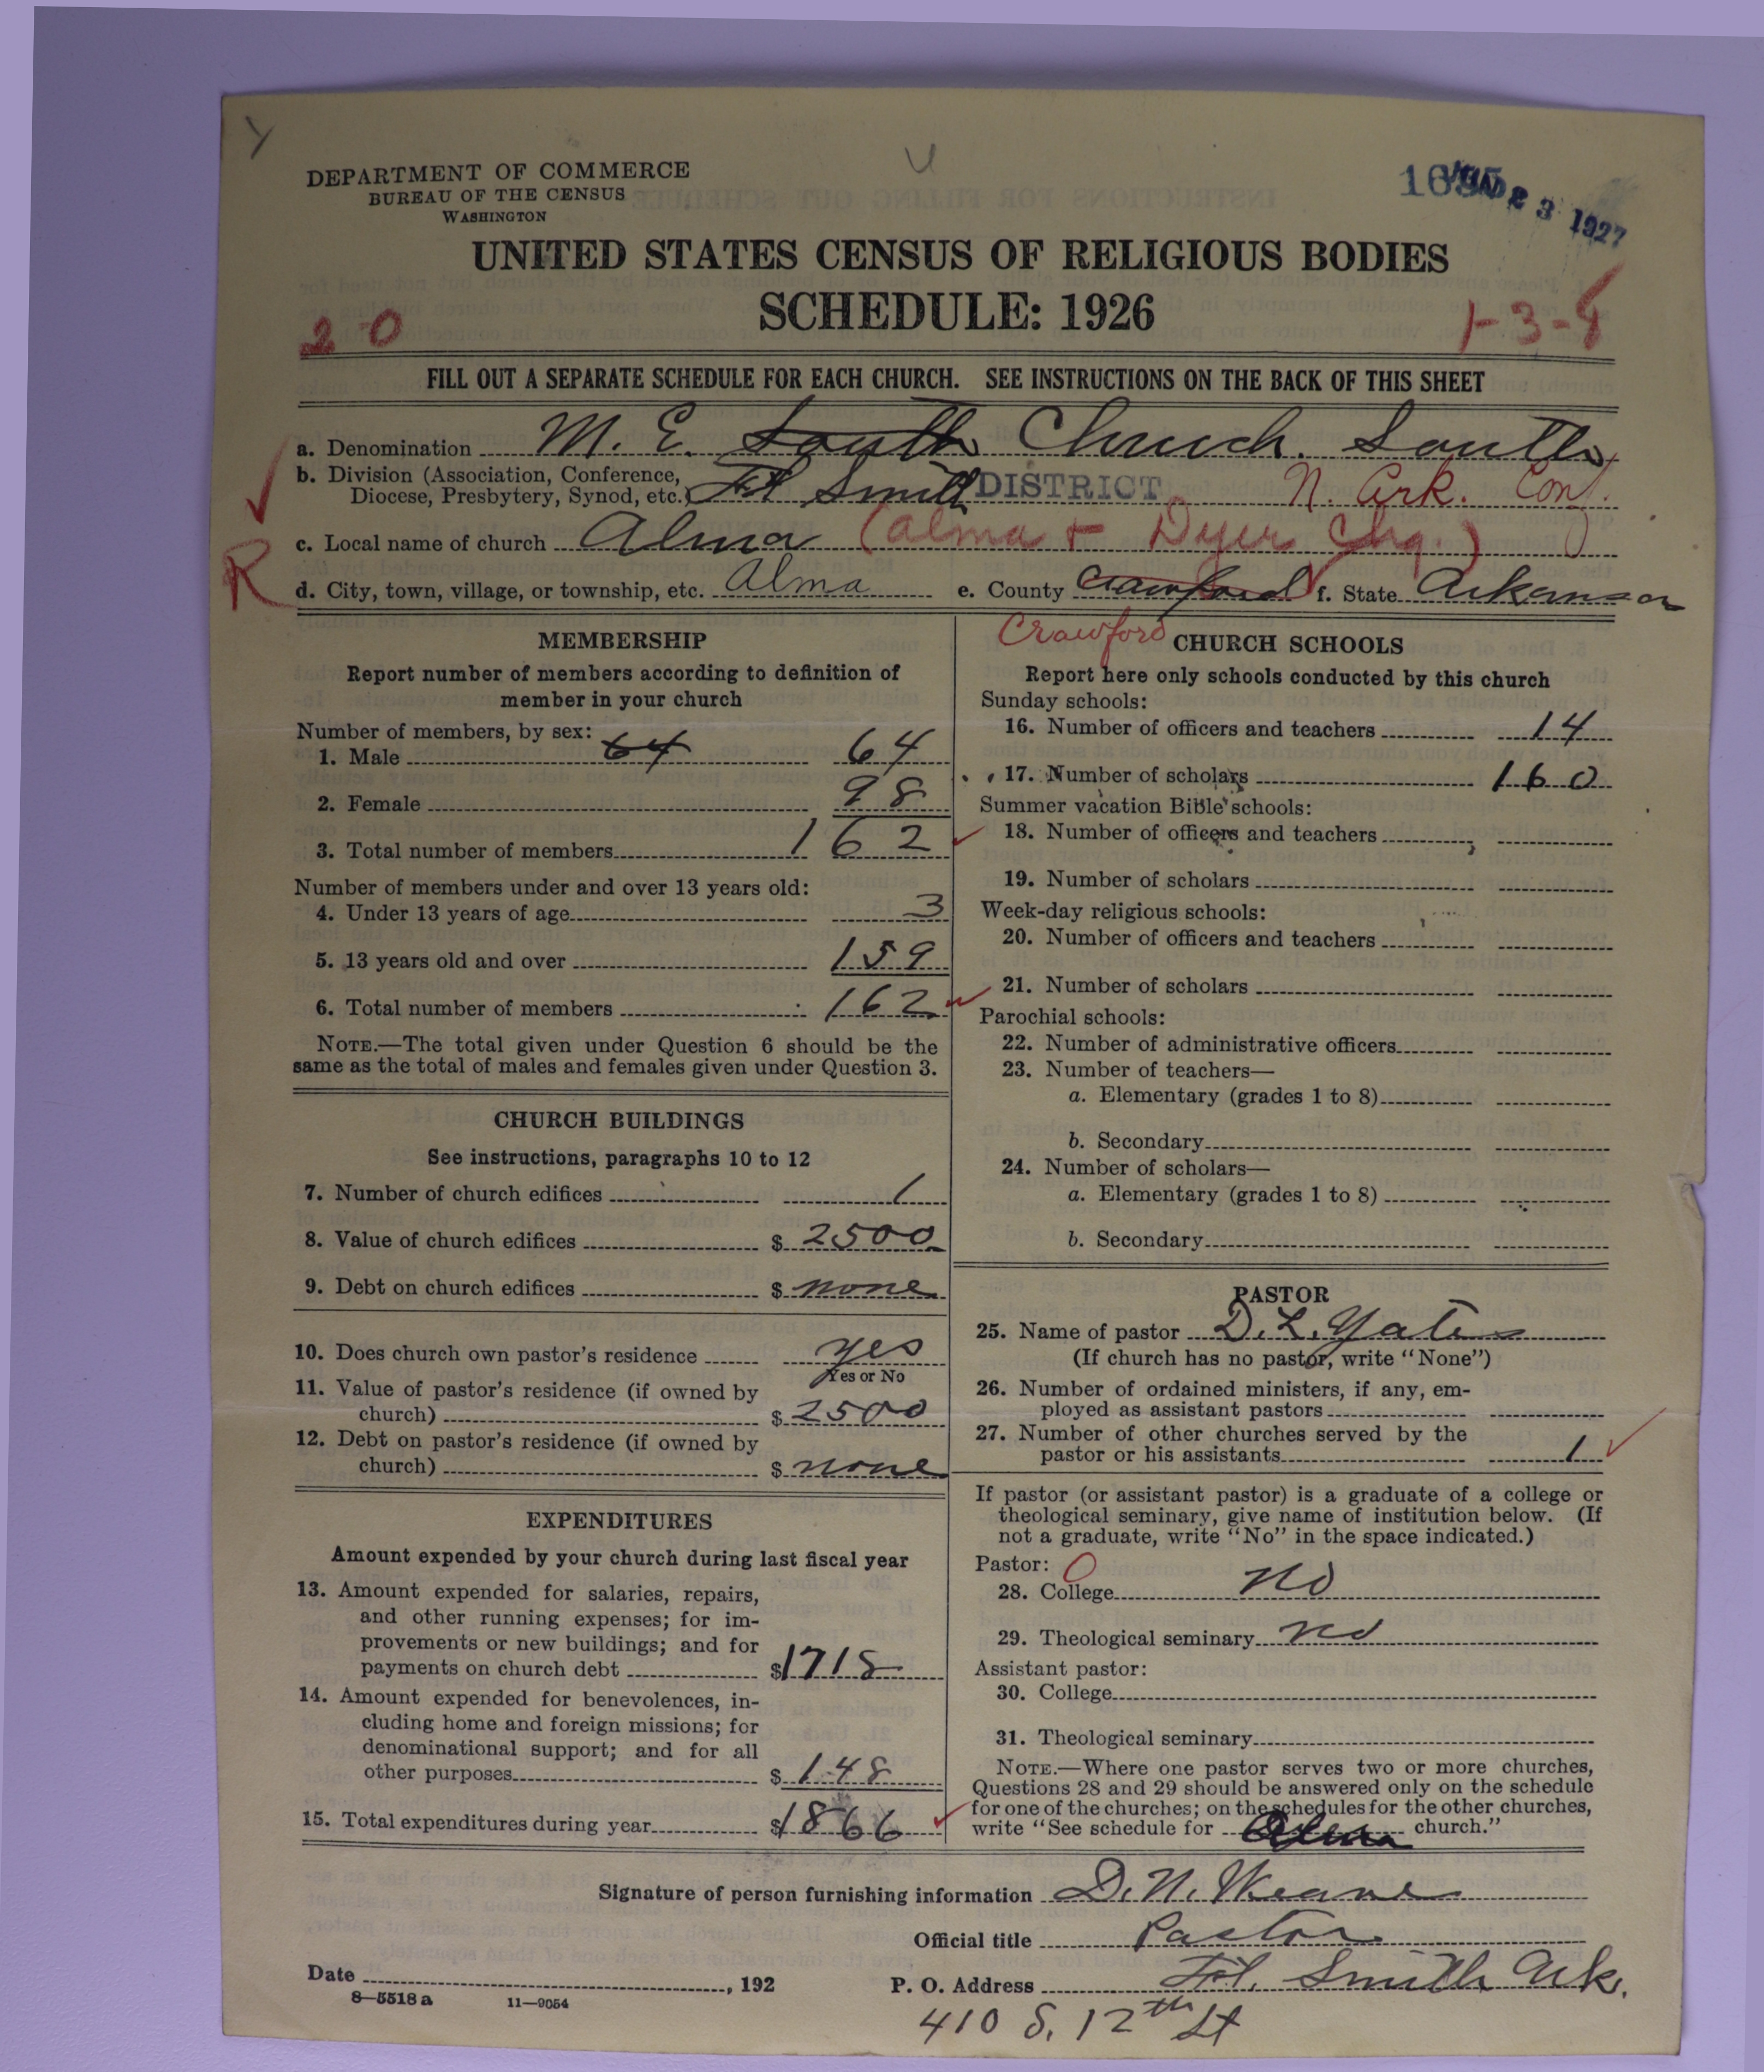 DEPARTMENT OF COMMERCE
BUREAU OF THE CENSUS
WASHINGTON
23 1927
UNITED STATES CENSUS OF RELIGIOUS BODIES
SCHEDULE: 1926
20
1-3-8
FILL OUT A SEPARATE SCHEDULE FOR EACH CHURCH. SEE INSTRUCTIONS ON THE BACK OF THIS SHEET
a. Denomination M. E. South Church. South
b. Division (Association, Conference,
Diocese, Presbytery, Synod, etc.) Ft Smith DISTRICT N. Ark. Conf.
c. Local name of church Alma (Alma + Dyer Chg.)
R
d. City, town, village, or township, etc. Alma e. County Crawford f. State Arkansas
Crawford
MEMBERSHIP
Report number of members according to definition of
member in your church
Number of members, by sex:
1. Male 64 64
2. Female 98
3. Total number of members 162
Number of members under and over 13 years old:
4. Under 13 years of age 3
5. 13 years old and over 159
6. Total number of members 162
NOTE.—The total given under Question 6 should be the
same as the total of males and females given under Question 3.
CHURCH BUILDINGS
See instructions, paragraphs 10 to 12
7. Number of church edifices 1
8. Value of church edifices $ 2500
9. Debt on church edifices $ none
10. Does church own pastor's residence yes
Yes or No
11. Value of pastor's residence (if owned by
church) $ 2500
12. Debt on pastor's residence (if owned by
church) $ none
EXPENDITURES
Amount expended by your church during last fiscal year
13. Amount expended for salaries, repairs,
and other running expenses; for im-
provements or new buildings; and for
payments on church debt $1718
14. Amount expended for benevolences, in-
cluding home and foreign missions; for
denominational support; and for all
other purposes $ 148
15. Total expenditures during year $1866
CHURCH SCHOOLS
Report here only schools conducted by this church
Sunday schools:
16. Number of officers and teachers 14
17. Number of scholars 160
Summer vacation Bible schools:
18. Number of officers and teachers
19. Number of scholars
Week-day religious schools:
20. Number of officers and teachers
21. Number of scholars
Parochial schools:
22. Number of administrative officers
23. Number of teachers—
a. Elementary (grades 1 to 8)
b. Secondary
24. Number of scholars—
a. Elementary (grades 1 to 8)
b. Secondary
PASTOR
25. Name of pastor D. L. Yates
(If church has no pastor, write "None")
26. Number of ordained ministers, if any, em-
ployed as assistant pastors
27. Number of other churches served by the
pastor or his assistants 1
If pastor (or assistant pastor) is a graduate of a college or
theological seminary, give name of institution below. (If
not a graduate, write "No" in the space indicated.)
Pastor: O
28. College no
29. Theological seminary no
Assistant pastor:
30. College
31. Theological seminary
NOTE.—Where one pastor serves two or more churches,
Questions 28 and 29 should be answered only on the schedule
for one of the churches; on the schedules for the other churches,
write "See schedule for Alma church."
Signature of person furnishing information D. N.
Official title Pastor
Date , 192
P. O. Address Ft. Smith Ark.
8—5518 a 11—9054
410 S. 12th St